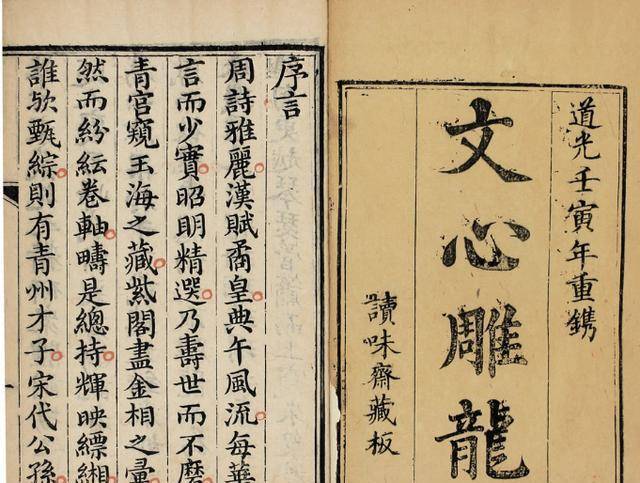 道光壬寅年重鐫
文心雕龍
讀味齋藏板
序言
周詩雅麗漢賦矞皇典午風流每華
言而少實昭明精選乃壽世而不磨
青宫窺玉海之藏紫閣盡金相之彙
然而紛紜卷軸疇是總持輝映縹緗
誰歟甄綜則有青州才子宋代公孫